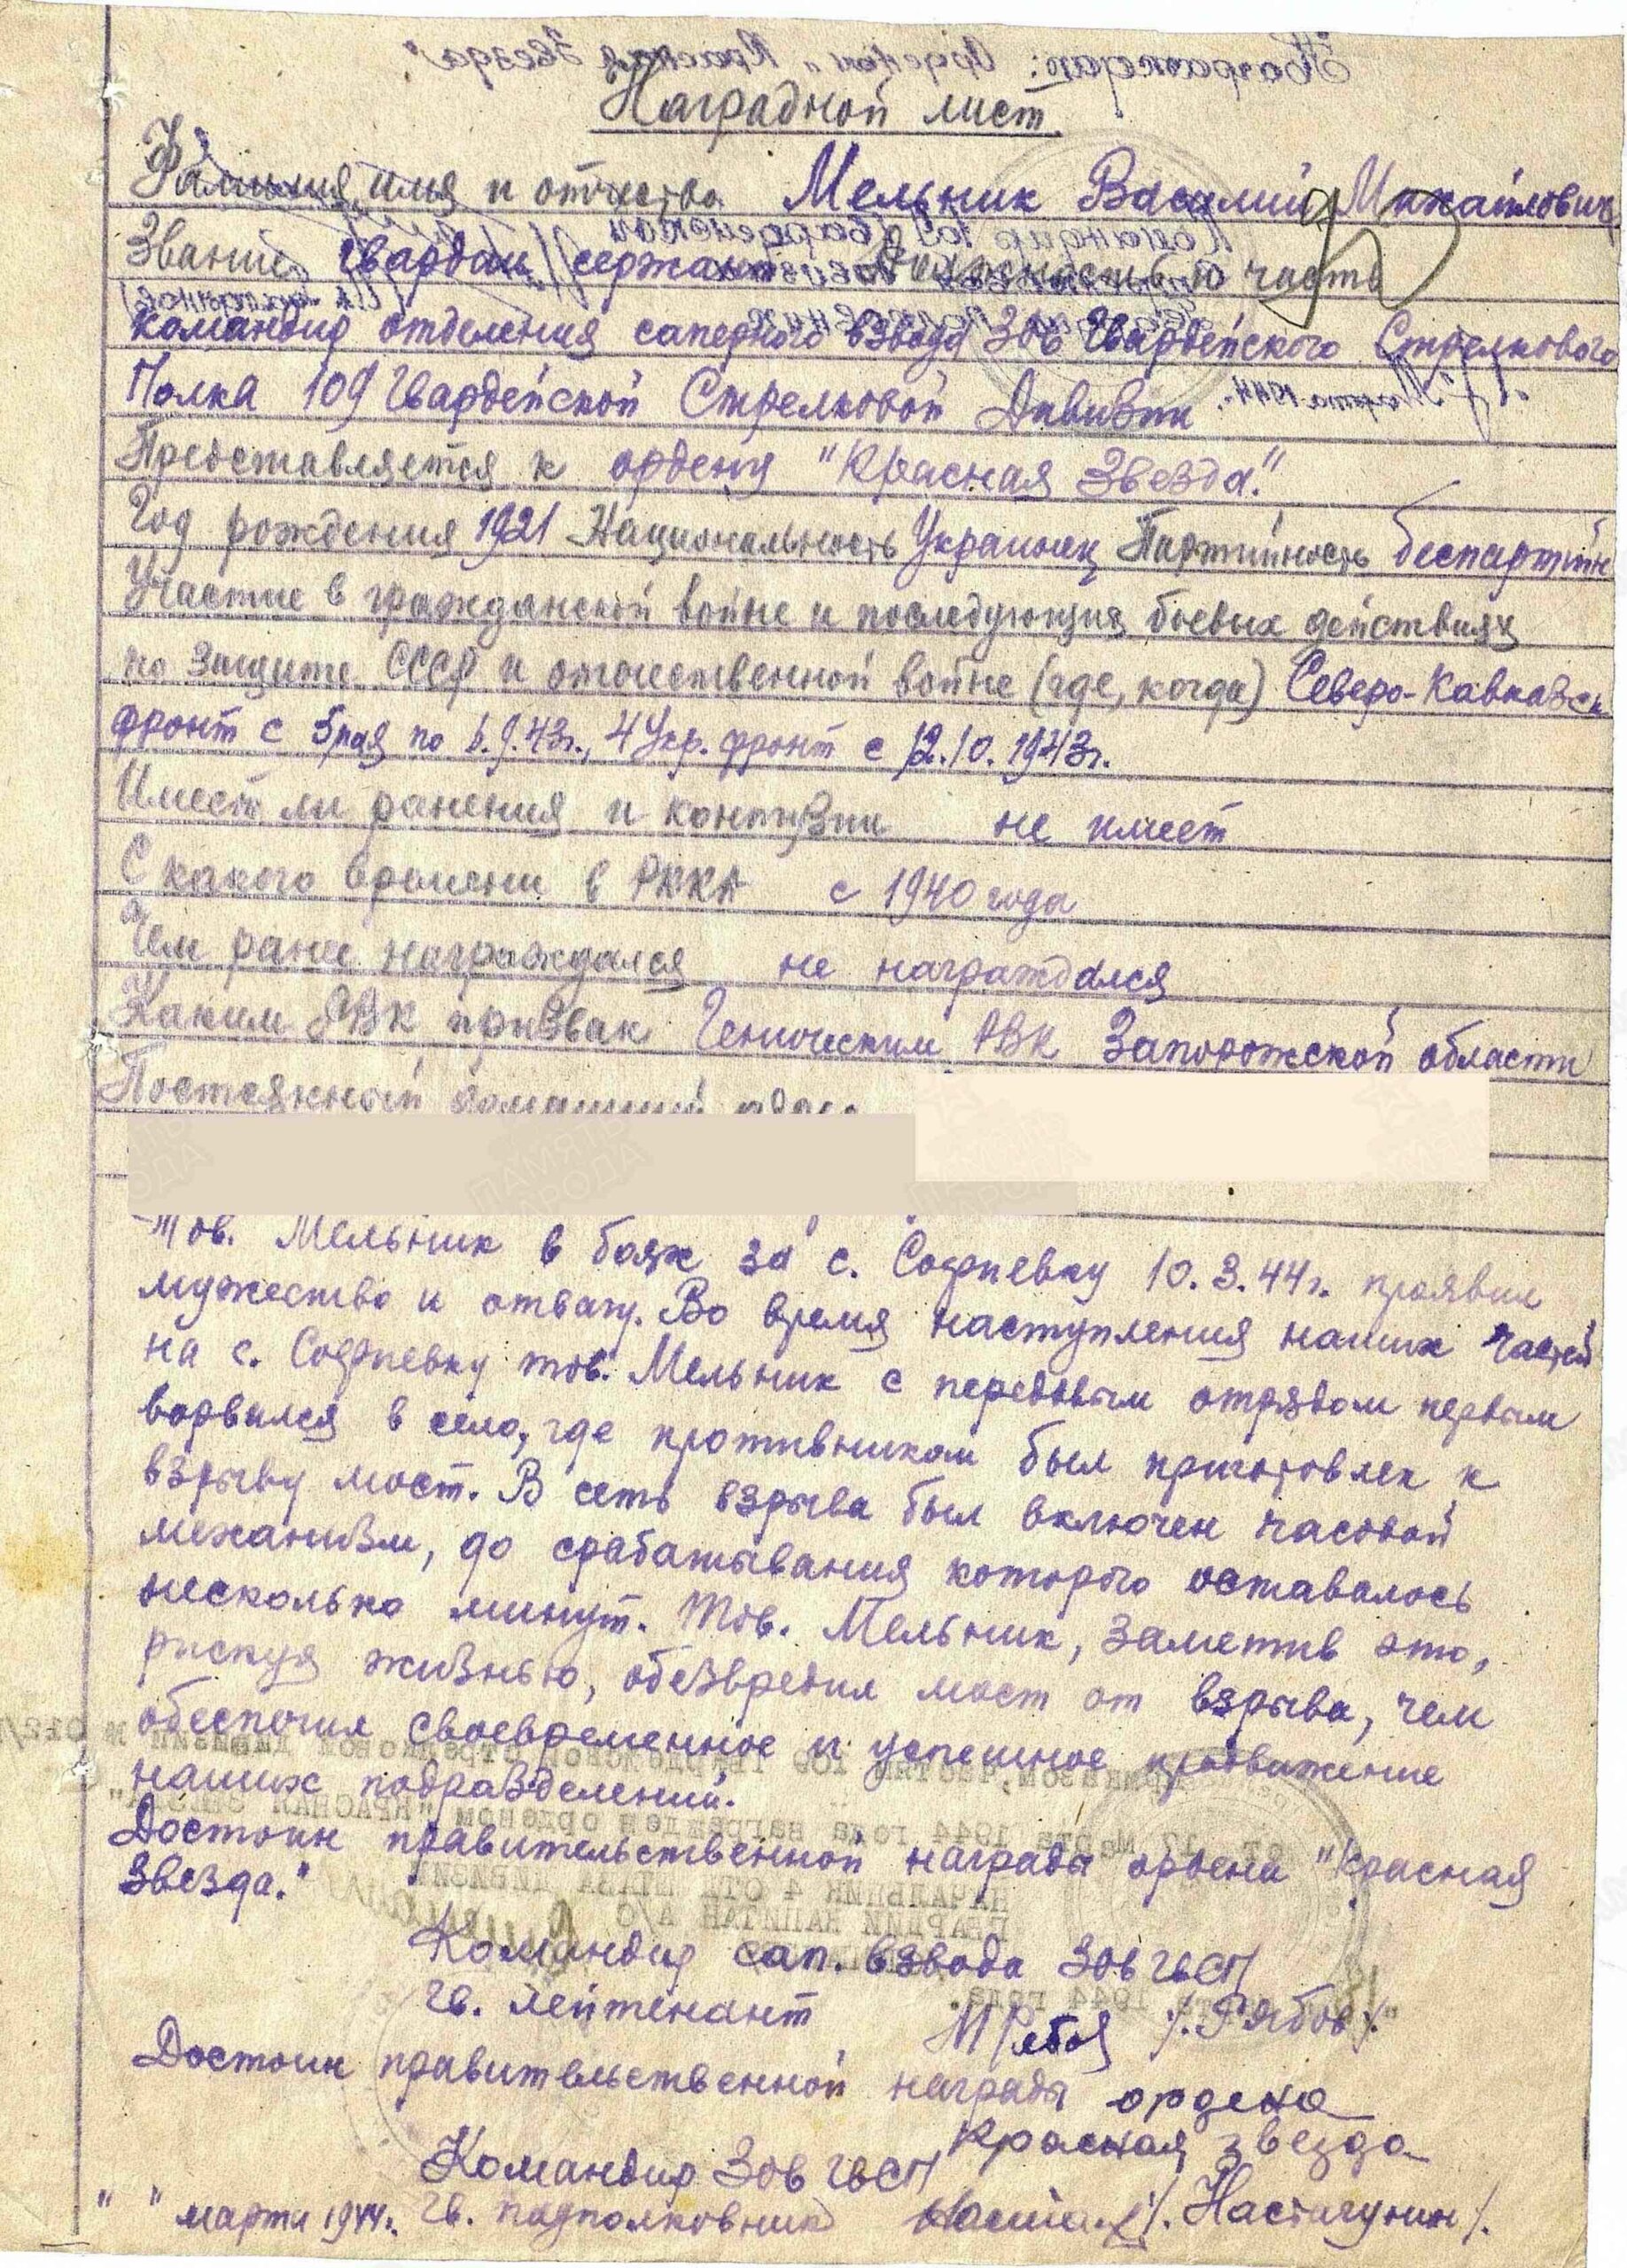 Наградной лист
Фамилия, имя и отчество Мельник Василий Михайлович
Звание гвардии сержант Должность и часть
командир отделения саперного взвода 306 Гвардейского Стрелкового
Полка 109 Гвардейской Стрелковой Дивизии
Представляется к ордену "Красная Звезда".
Год рождения 1921 Национальность Украинец Партийность беспартийн
Участие в гражданской войне и последующих боевых действиях
по защите СССР и отечественной войне (где, когда) Северо-Кавказск
фронт с 5 мая по 6.9.43г., 4 Укр. фронт с 12.10.1943г.
Имеет ли ранения и контузии не имеет
С какого времени в РККА с 1940 года
Чем ранее награждался не награждался
Каким РВК призван Геническим РВК Запорожской области
Постоянный домашний адрес
Тов. Мельник в боях за с. Софиевку 10.3.44г. проявил
мужество и отвагу. Во время наступления наших частей
на с. Софиевку тов. Мельник с передовым отрядом первым
ворвался в село, где противником был приготовлен к
взрыву мост. В сеть взрыва был включен часовой
механизм, до срабатывания которого оставалось
несколько минут. Тов. Мельник, заметив это,
рискуя жизнью, обезвредил мост от взрыва, чем
обеспечил своевременное и успешное продвижение
наших подразделений.
Достоин правительственной награды ордена "Красная
Звезда."
Командир сап. взвода 306 гвСП
гв. лейтенант /.Рябов/.
Достоин правительственной награды ордена
Красная звезда
Командир 306 гвСП
" " марта 1944г. гв. подполковник /.Настагунин/.